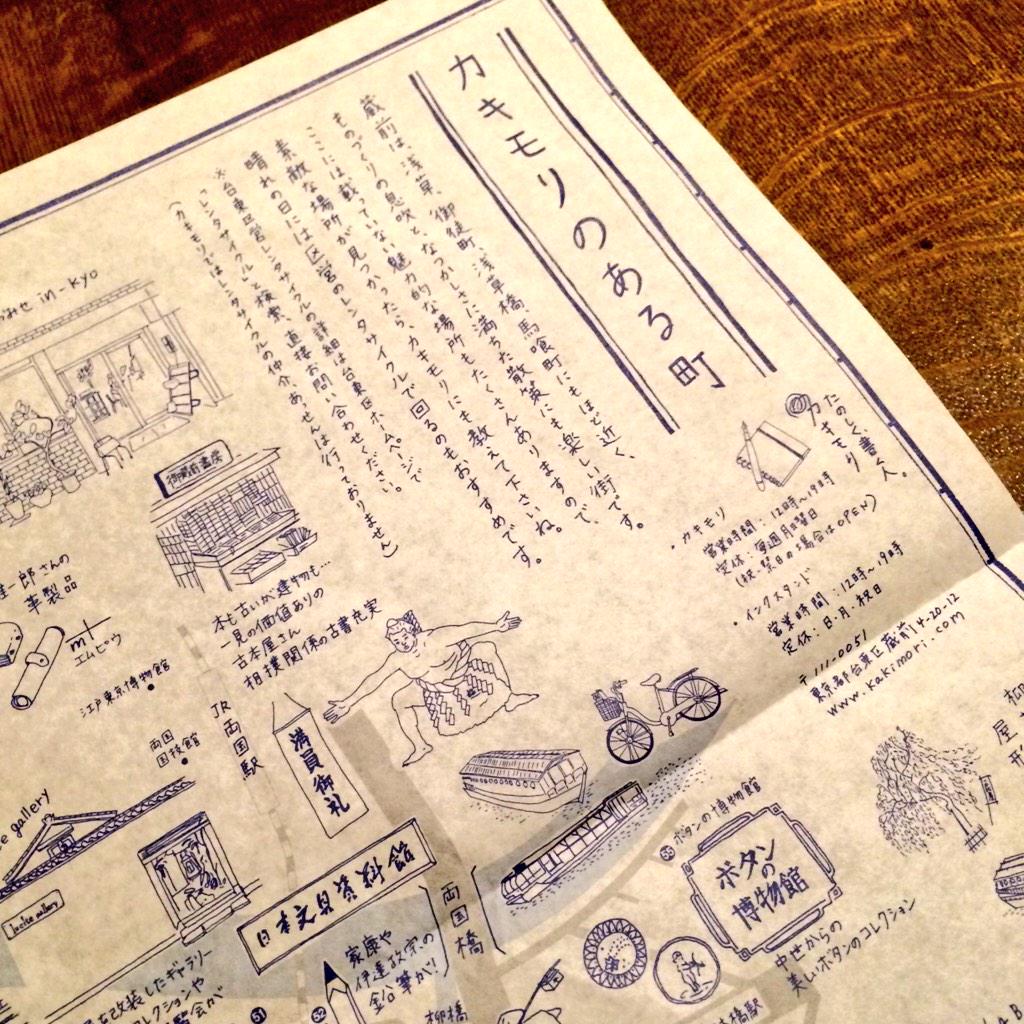 カキモリのある町
蔵前は、浅草、御徒町、浅草橋、馬喰町にもほど近く、
ものづくりの息吹と、なつかしさに満ちた散策にも楽しい街です。
ここには載っていない魅力的な場所もたくさんありますので、
素敵な場所が見つかったら、カキモリにも教えて下さいね。
晴れの日には区営のレンタサイクルで回るのもおすすめです。
※台東区営レンタサイクルの詳細は台東区ホームページで
「レンタサイクル」と検索、直接お問い合わせください。
(カキモリではレンタサイクルの仲介、あっせんは行っておりません)
たのしく書く人。
カキモリ
・カキモリ
営業時間：12時〜19時
定休：毎週月曜日
(祝翌日の場合はOPEN)
・インクスタンド
営業時間：12時〜19時
定休：日・月・祝日
〒111-0051
東京都台東区蔵前4-20-12
www.kakimori.com
みせ in-kyo
御蔵前書房
本も古いが建物も…
一見の価値ありの
古本屋さん
相撲関係の古書充実
一郎さんの
革製品
m+
エムピウ
江戸東京博物館
両国
国技館
JR両国駅
満員御礼
gallery
日本文具資料館
家康や
伊達政宗の
鉛筆が!
両国橋
柳橋
ボタンの博物館
ボタンの
博物館
中世からの
美しいボタンのコレクション
を改装したギャラリー
コレクションや
覧会が
51
52
屋形
橋駅